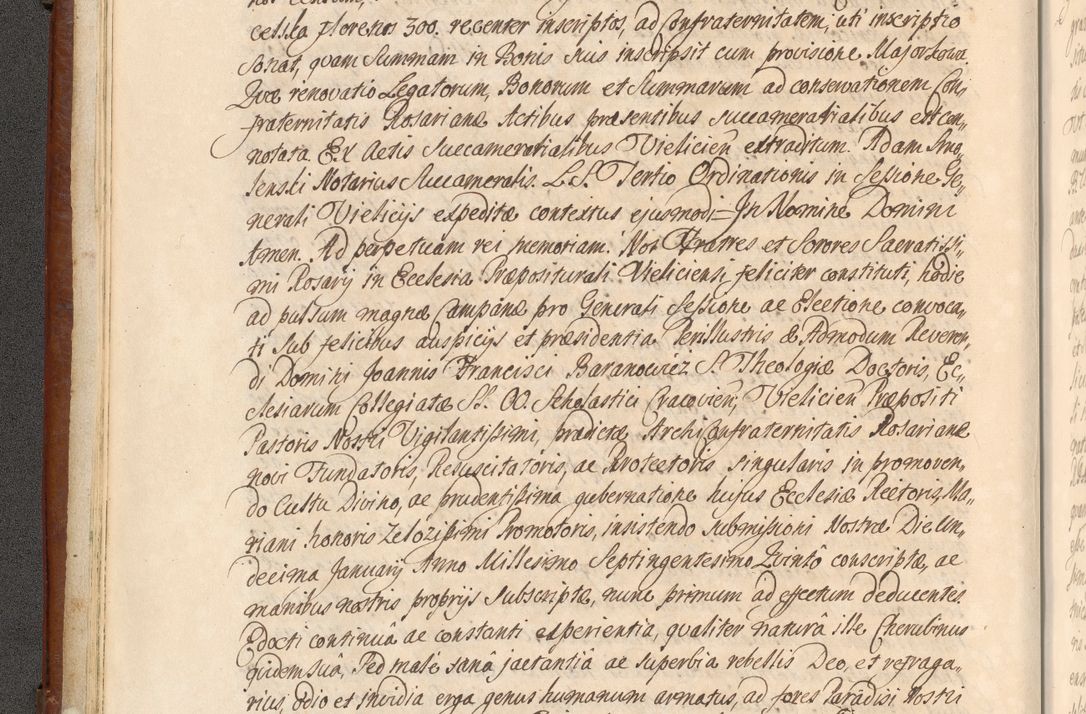 cessa florenos 300. recenter inscriptos, ad Confraternitatem, uti inscriptio
sonat, quam Summam in Bonis suis inscripsit cum provisione Majorkowa.
Quæ renovatio Legatorum, Bonorum et Summarum ad conservationem Con„
fraternitatis Rosarianæ Actibus præsentibus succameratialibus est con„
notata. Ex Actis Succameratialibus Vieliciēn extraditum. Adam Smo„
lenski Notarius Succameralis. L.S. Tertio Ordinationis in Sessione Ge„
nerali Vielicijs expeditæ contextus ejusmodi = In Nomine Domini
Amen. Ad perpetuam rei memoriam. Nos Fratres et Sorores Sacratissi„
mi Rosarij in Ecclesia Præpositurali Vieliciensi feliciter constituti, hodie
ad pulsum magnæ Campanæ pro Generali Sessione ac Electione convoca„
ti sub felicibus auspicijs et præsidentia Perillustris & Admodum Reveren„
di Domini Joannis Francisci Baranowicz S. Theologiæ Doctoris, Ec„
clesiarum Collegiatæ SS. OO. Scholastici Cracovieñ, Vielicień Præpositi
Pastoris Nostri Vigilantissimi, prædictæ ArchiConfraternitatis Rosarianæ
novi Fundatoris, Resuscitatoris, ac Protectoris singularis in promoven„
do Cultu Divino, ac prudentissima gubernatione hujus Ecclesiæ Rectoris, Ma„
riani honoris Zelozissimi Promotoris, insistendo submissioni Nostræ Die Un„
decima Januarij Anno Millesimo Septingentesimo Quintô conscriptæ, ac
manibus nostris proprijs subscriptæ, nunc primum ad effectum deducentes.
Edocti continuâ ac constanti experientia, qualiter naturâ ille Cherubinus
quidem sua, sed malè sanâ jactantiâ ac superbia rebellis Deo, et refraga„
rius, odio et invidia erga genus humanum armatus, ad fores Paradisi Nostri